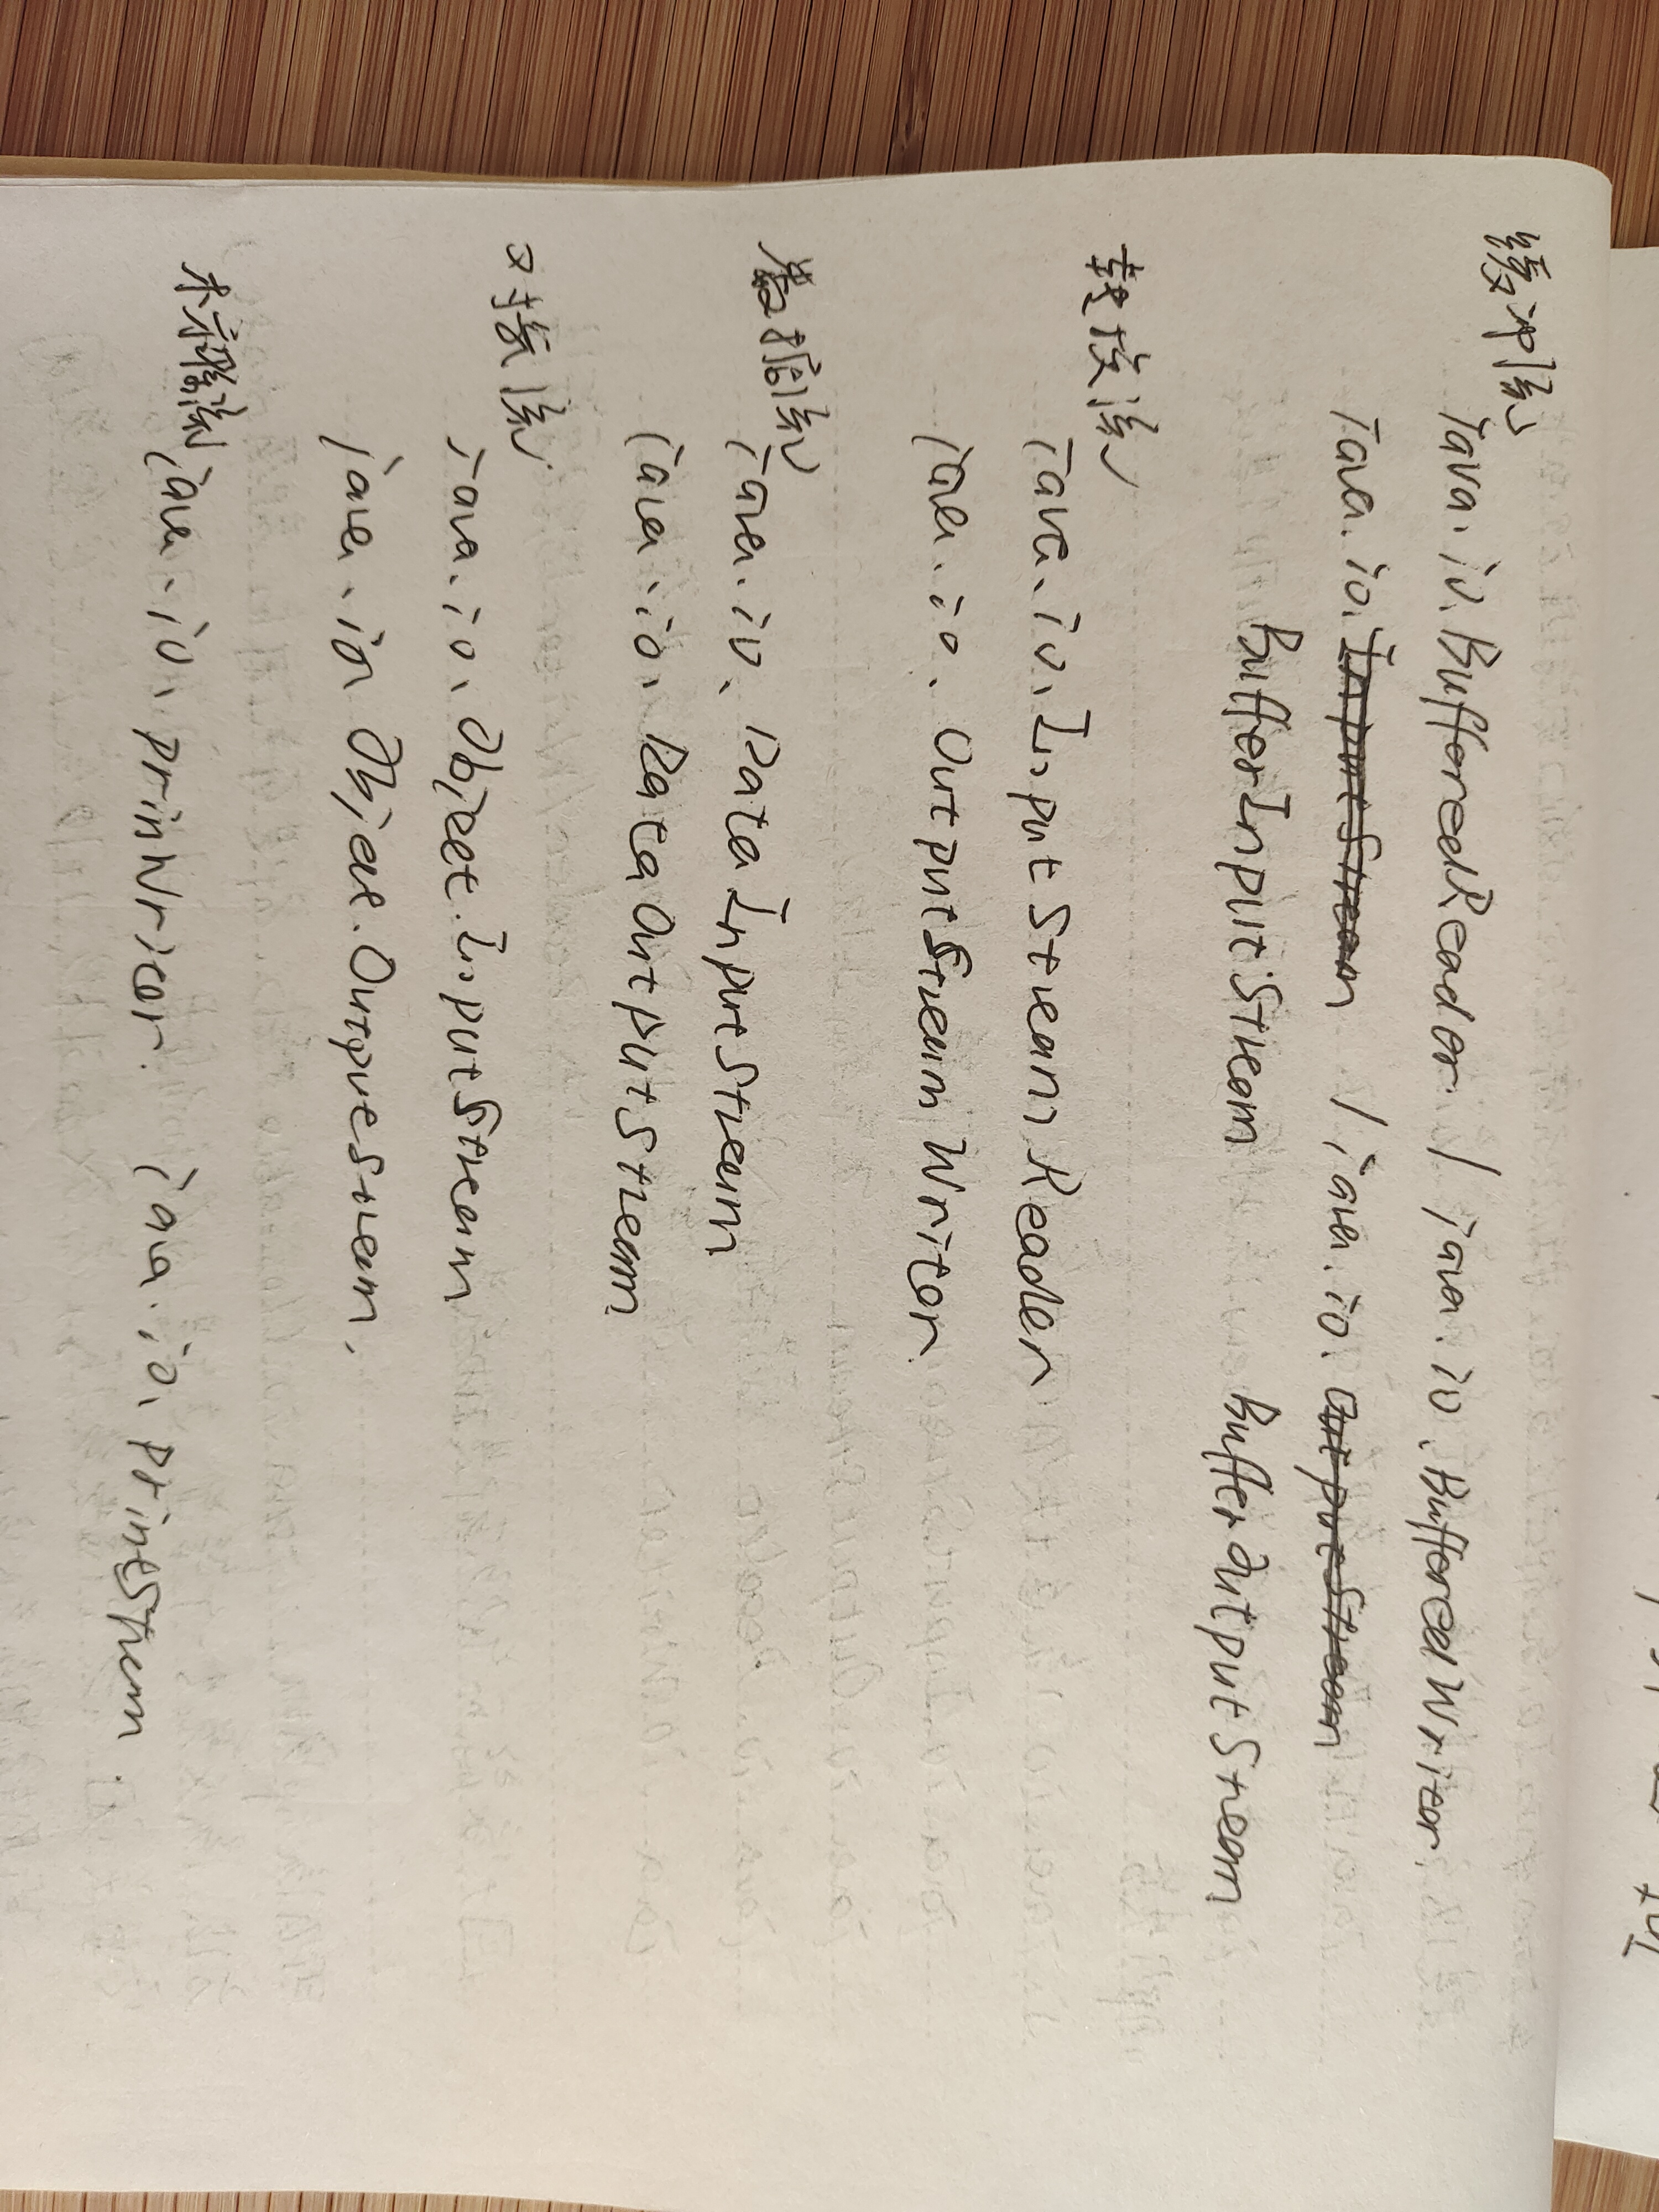 缓冲流
java.io.BufferedReador / java.io.BufferedWritor
java.io.InputStream / java.io.OutputStream
BufferInputStream BufferOutputStream
转换流
java.io.InputStreamReader
java.io.OutputStreamWritor
数据流
java.io.DataInputStream
java.io.DataOutputStream
对接流
java.io.Object.InputStream
java.io.Object.OutputStream
java.io.prinWritor. java.io.printStream.